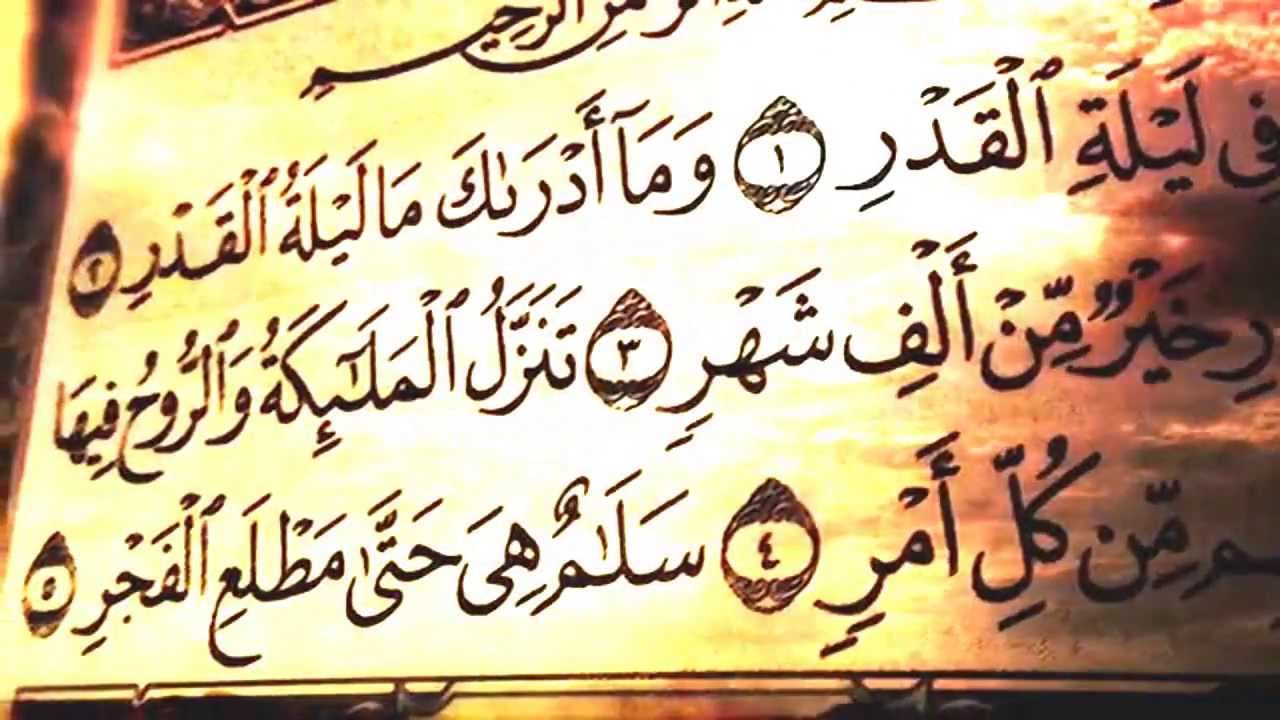 الرَّحِيمِ
فِى لَيْلَةِ ٱلْقَدْرِ ١ وَمَآ أَدْرَىٰكَ مَا لَيْلَةُ ٱلْقَدْرِ ٢
خَيْرٌ مِّنْ أَلْفِ شَهْرٍ ٣ تَنَزَّلُ ٱلْمَلَٰٓئِكَةُ وَٱلرُّوحُ فِيهَا
مِّن كُلِّ أَمْرٍ ٤ سَلَٰمٌ هِىَ حَتَّىٰ مَطْلَعِ ٱلْفَجْرِ ٥